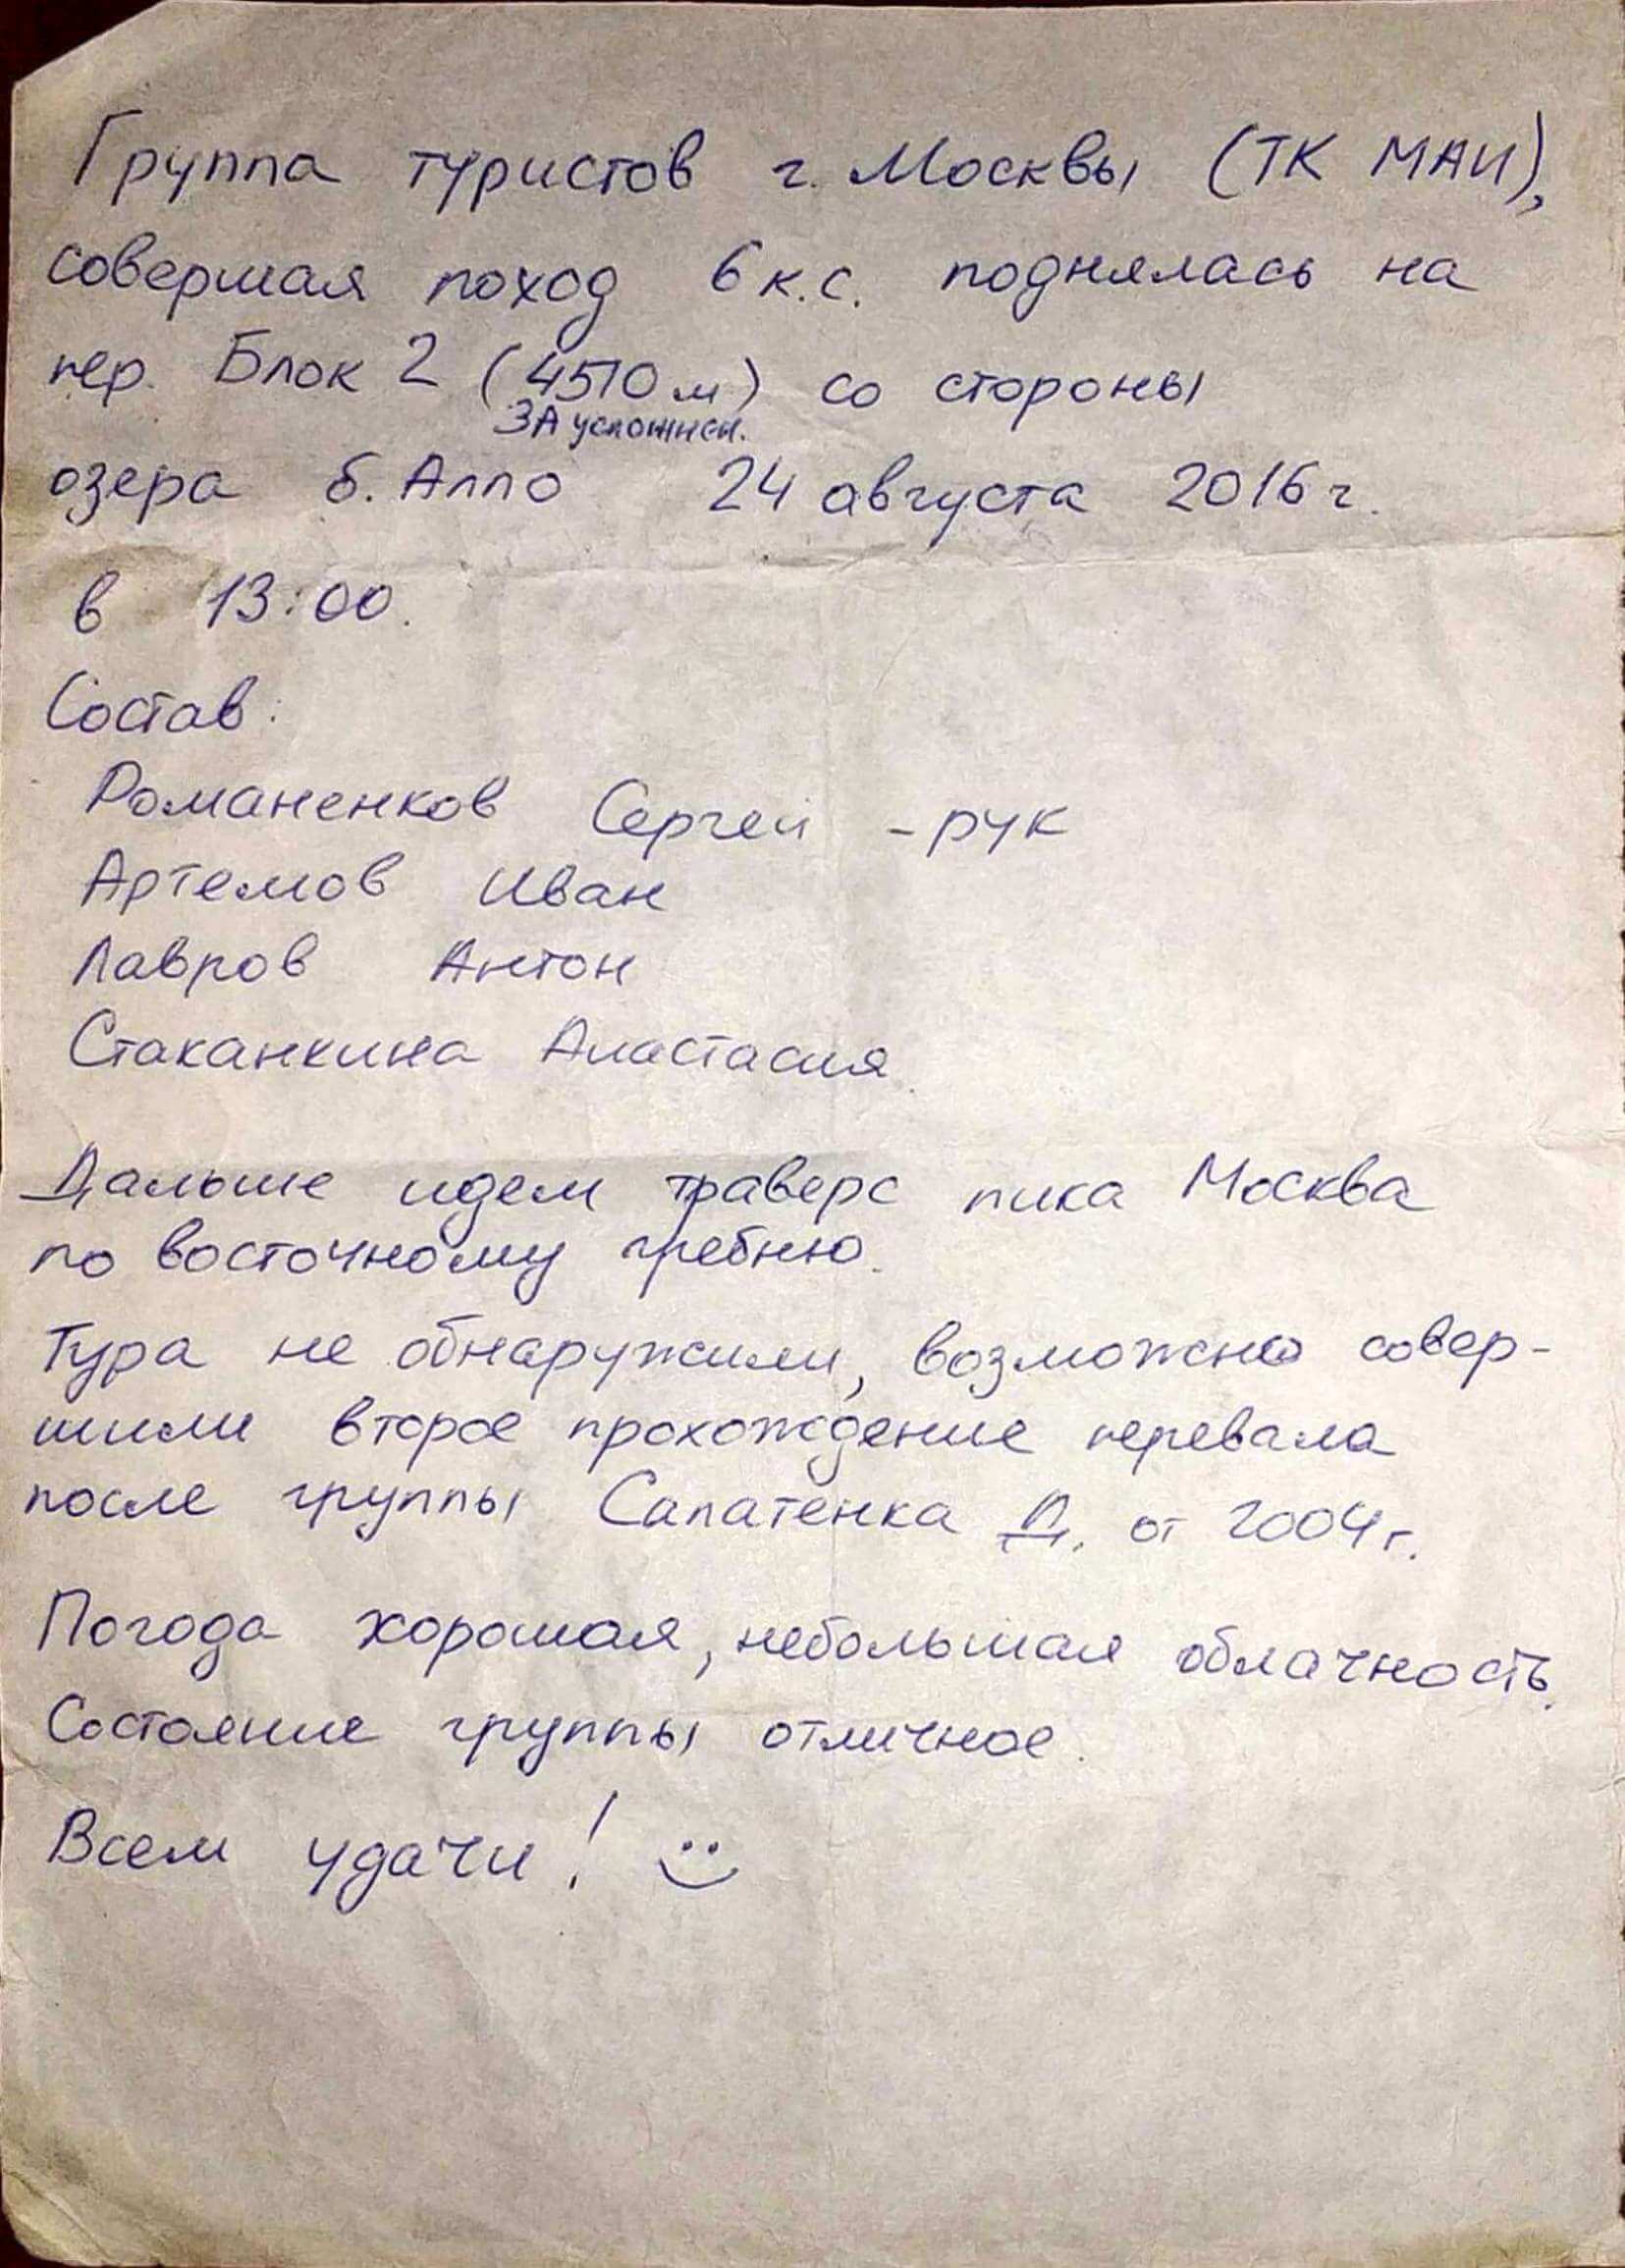 Группа туристов г. Москвы (ТК МАИ),
совершая поход 6 к.с. поднялась на
пер. Блок 2 (4570 м) со стороны
3А усложнен.
озера б. Алло 24 августа 2016 г.
в 13:00.
Состав:
Романенков Сергей - рук
Артемов Иван
Лавров Антон
Стаканкина Анастасия.
Дальше идем траверс пика Москва
по восточному гребню.
Тура не обнаружили, возможно совер-
шили второе прохождение перевала
после группы Сапатенка Д. от 2004 г.
Погода хорошая, небольшая облачность.
Состояние группы отличное.
Всем удачи! :)